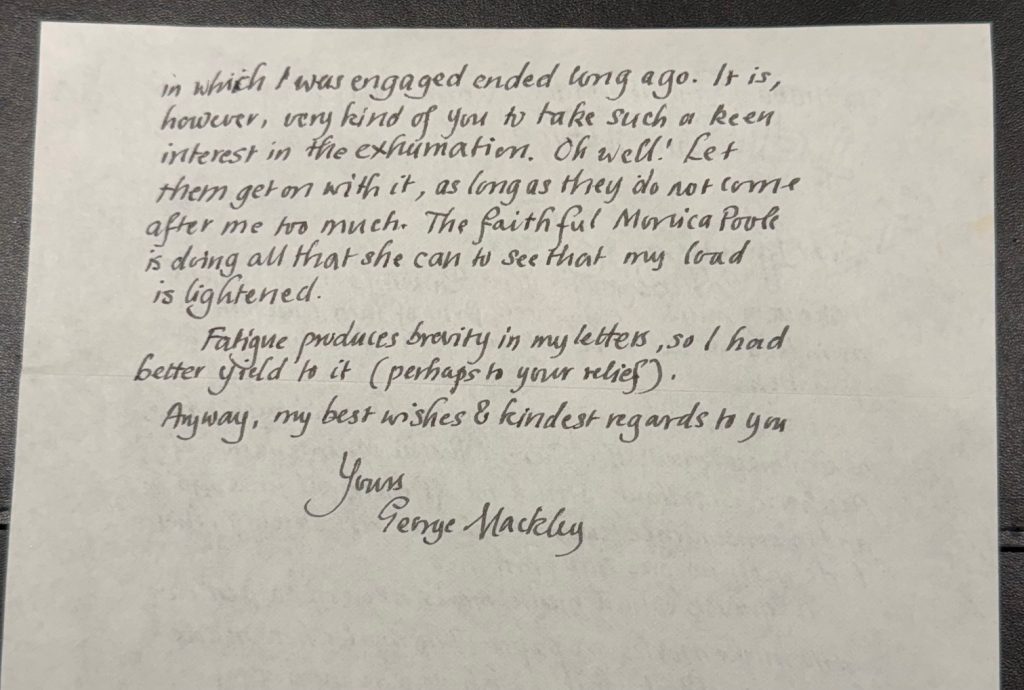 in which I was engaged ended long ago. It is,
however, very kind of you to take such a keen
interest in the exhumation. Oh well! Let
them get on with it, as long as they do not come
after me too much. The faithful Monica Poole
is doing all that she can to see that my load
is lightened.
Fatigue produces brevity in my letters, so I had
better yield to it (perhaps to your relief).
Anyway, my best wishes & kindest regards to you
Yours
George Mackley